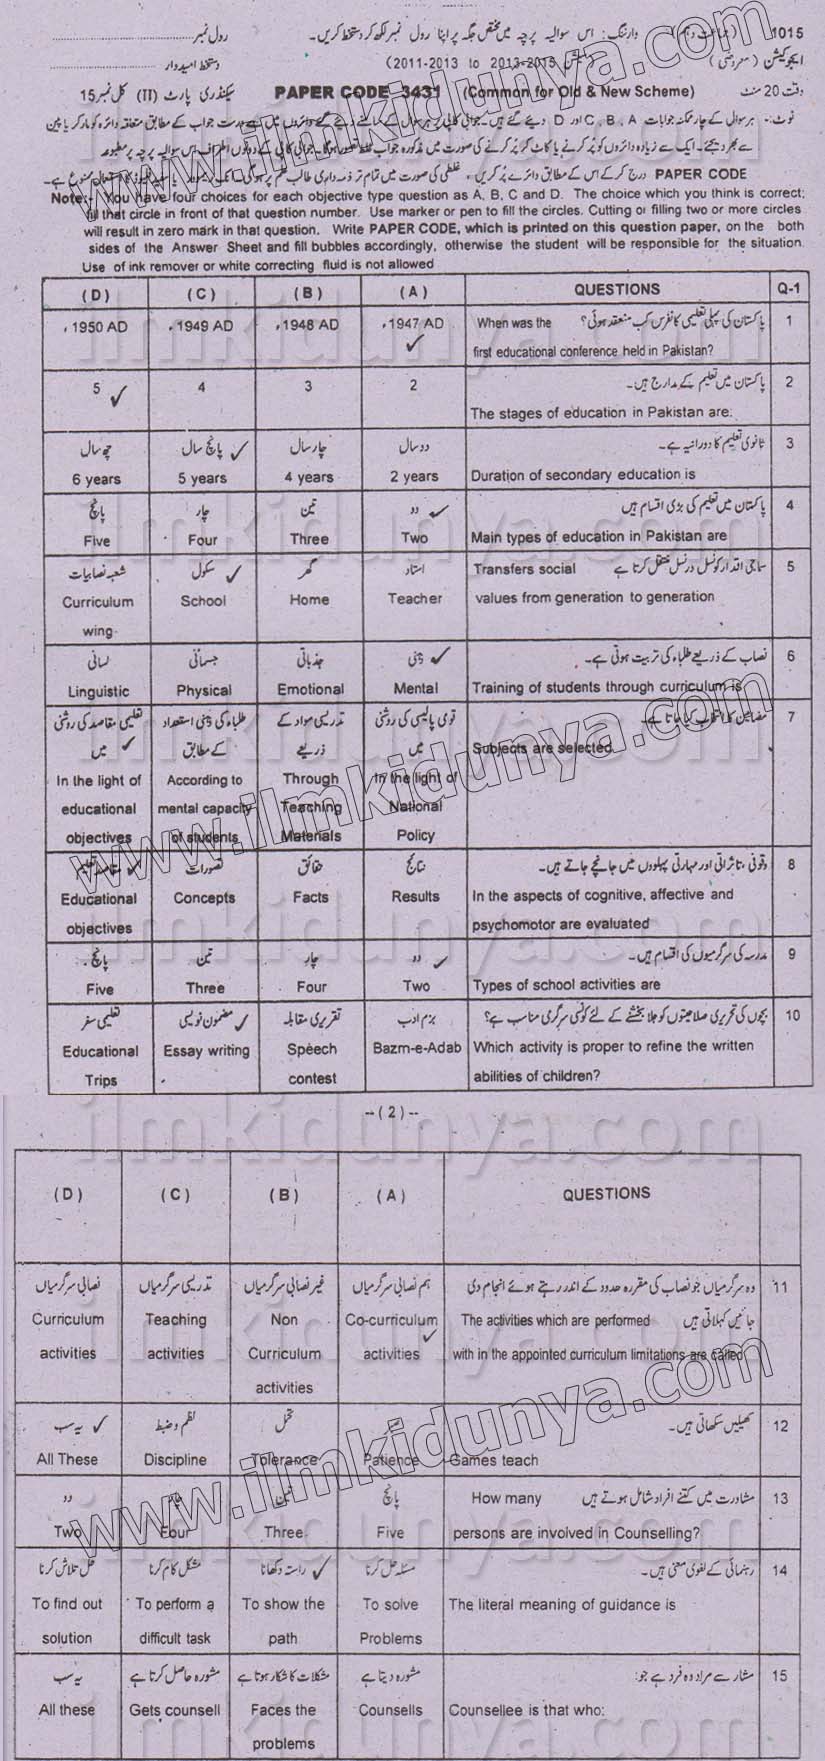 1015 (جماعت دہم) وارننگ: اس سوالیہ پرچہ میں مختص جگہ پر اپنا رول نمبر لکھ کر دستخط کریں۔ رول نمبر
ایجوکیشن (معروضی) (سیشن 2013-2015 to 2011-2013) دستخط امیدوار
وقت 20 منٹ (Common for Old & New Scheme) PAPER CODE 3431 سیکنڈری پارٹ (II) کل نمبر 15
نوٹ:۔ ہر سوال کے چار ممکنہ جوابات A ، B ، C اور D دیئے گئے ہیں۔ جوابی کاپی پر ہر سوال کے سامنے دیئے گئے دائروں میں سے درست جواب کے مطابق متعلقہ دائرہ کو مارکر یا پین
سے بھر دیجئے۔ ایک سے زیادہ دائروں کو پُر کرنے یا کاٹ کر پُر کرنے کی صورت میں مذکورہ جواب غلط تصور ہوگا۔ جوابی کاپی کے دونوں اطراف اس سوالیہ پرچہ پر مطبوعہ
PAPER CODE درج کر کے اس کے مطابق دائرے پُر کریں، غلطی کی صورت میں تمام تر ذمہ داری طالب علم پر ہوگی۔ کا استعمال ممنوع ہے۔
Note:- You have four choices for each objective type question as A, B, C and D. The choice which you think is correct;
fill that circle in front of that question number. Use marker or pen to fill the circles. Cutting or filling two or more circles
will result in zero mark in that question. Write PAPER CODE, which is printed on this question paper, on the both
sides of the Answer Sheet and fill bubbles accordingly, otherwise the student will be responsible for the situation.
Use of ink remover or white correcting fluid is not allowed
(D) (C) (B) (A) QUESTIONS Q-1
1950 AD 1949 AD 1948 AD 1947 AD When was the پاکستان کی پہلی تعلیمی کانفرس کب منعقد ہوئی؟ 1
first educational conference held in Pakistan?
5 4 3 2 پاکستان میں تعلیم کے مدارج ہیں۔ 2
The stages of education in Pakistan are:
چھ سال پانچ سال چار سال دو سال ثانوی تعلیم کا دورانیہ ہے۔ 3
6 years 5 years 4 years 2 years Duration of secondary education is
پانچ چار تین دو پاکستان میں تعلیم کی بڑی اقسام ہیں 4
Five Four Three Two Main types of education in Pakistan are
شعبہ نصابیات سکول گھر استاد Transfers social سماجی اقدار کو نسل در نسل منتقل کرتا ہے 5
Curriculum School Home Teacher values from generation to generation
wing
لسانی جسمانی جذباتی ذہنی نصاب کے ذریعے طلباء کی تربیت ہوتی ہے۔ 6
Linguistic Physical Emotional Mental Training of students through curriculum is
تعلیمی مقاصد کی روشنی طلباء کی ذہنی استعداد تدریسی مواد کے قومی پالیسی کی روشنی مضامین کا انتخاب کیا جاتا ہے۔ 7
میں کے مطابق ذریعے میں Subjects are selected
In the light of According to Through In the light of
educational mental capacity Teaching National
objectives of students Materials Policy
مقاصد تعلیم تصورات حقائق نتائج وقوفی ، تاثراتی اور مہارتی پہلوؤں میں جانچے جاتے ہیں۔ 8
Educational Concepts Facts Results In the aspects of cognitive, affective and
objectives psychomotor are evaluated
پانچ تین چار دو مدرسہ کی سرگرمیوں کی اقسام ہیں۔ 9
Five Three Four Two Types of school activities are
تعلیمی سفر مضمون نویسی تقریری مقابلہ بزم ادب بچوں کی تحریری صلاحیتوں کو جلا بخشنے کے لئے کونسی سرگرمی مناسب ہے؟ 10
Educational Essay writing Speech Bazm-e-Adab Which activity is proper to refine the written
Trips contest abilities of children?
--(2)--
(D) (C) (B) (A) QUESTIONS
نصابی سرگرمیاں تدریسی سرگرمیاں غیر نصابی سرگرمیاں ہم نصابی سرگرمیاں وہ سرگرمیاں جو نصاب کی مقررہ حدود کے اندر رہتے ہوئے انجام دی 11
Curriculum Teaching Non Co-curriculum The activities which are performed جائیں کہلاتی ہیں
activities activities Curriculum activities with in the appointed curriculum limitations are called
activities
یہ سب نظم و ضبط تحمل صبر کھیلیں سکھاتی ہیں۔ 12
All These Discipline Tolerance Patience Games teach
دو چار تین پانچ How many مشاورت میں کتنے افراد شامل ہوتے ہیں 13
Two Four Three Five persons are involved in Counselling?
حل تلاش کرنا مشکل کام کرنا راستہ دکھانا مسئلہ حل کرنا رہنمائی کے لغوی معنی ہیں۔ 14
To find out To perform a To show the To solve The literal meaning of guidance is
solution difficult task path Problems
یہ سب مشورہ حاصل کرتا ہے مشکلات کا شکار ہوتا ہے مشورہ دیتا ہے مشار سے مراد وہ فرد ہے جو: 15
All these Gets counsell Faces the Counsells Counsellee is that who:
problems
www.ilmkidunya.com
ilmkidunya.com